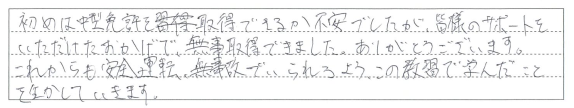 初めは中型免許を取得できるか不安でしたが、皆様のサポートを
いただけたおかげで、無事取得できました。ありがとうございます。
これからも安全運転、無事故でいられるよう、この教習で学んだこと
を生かしていきます。